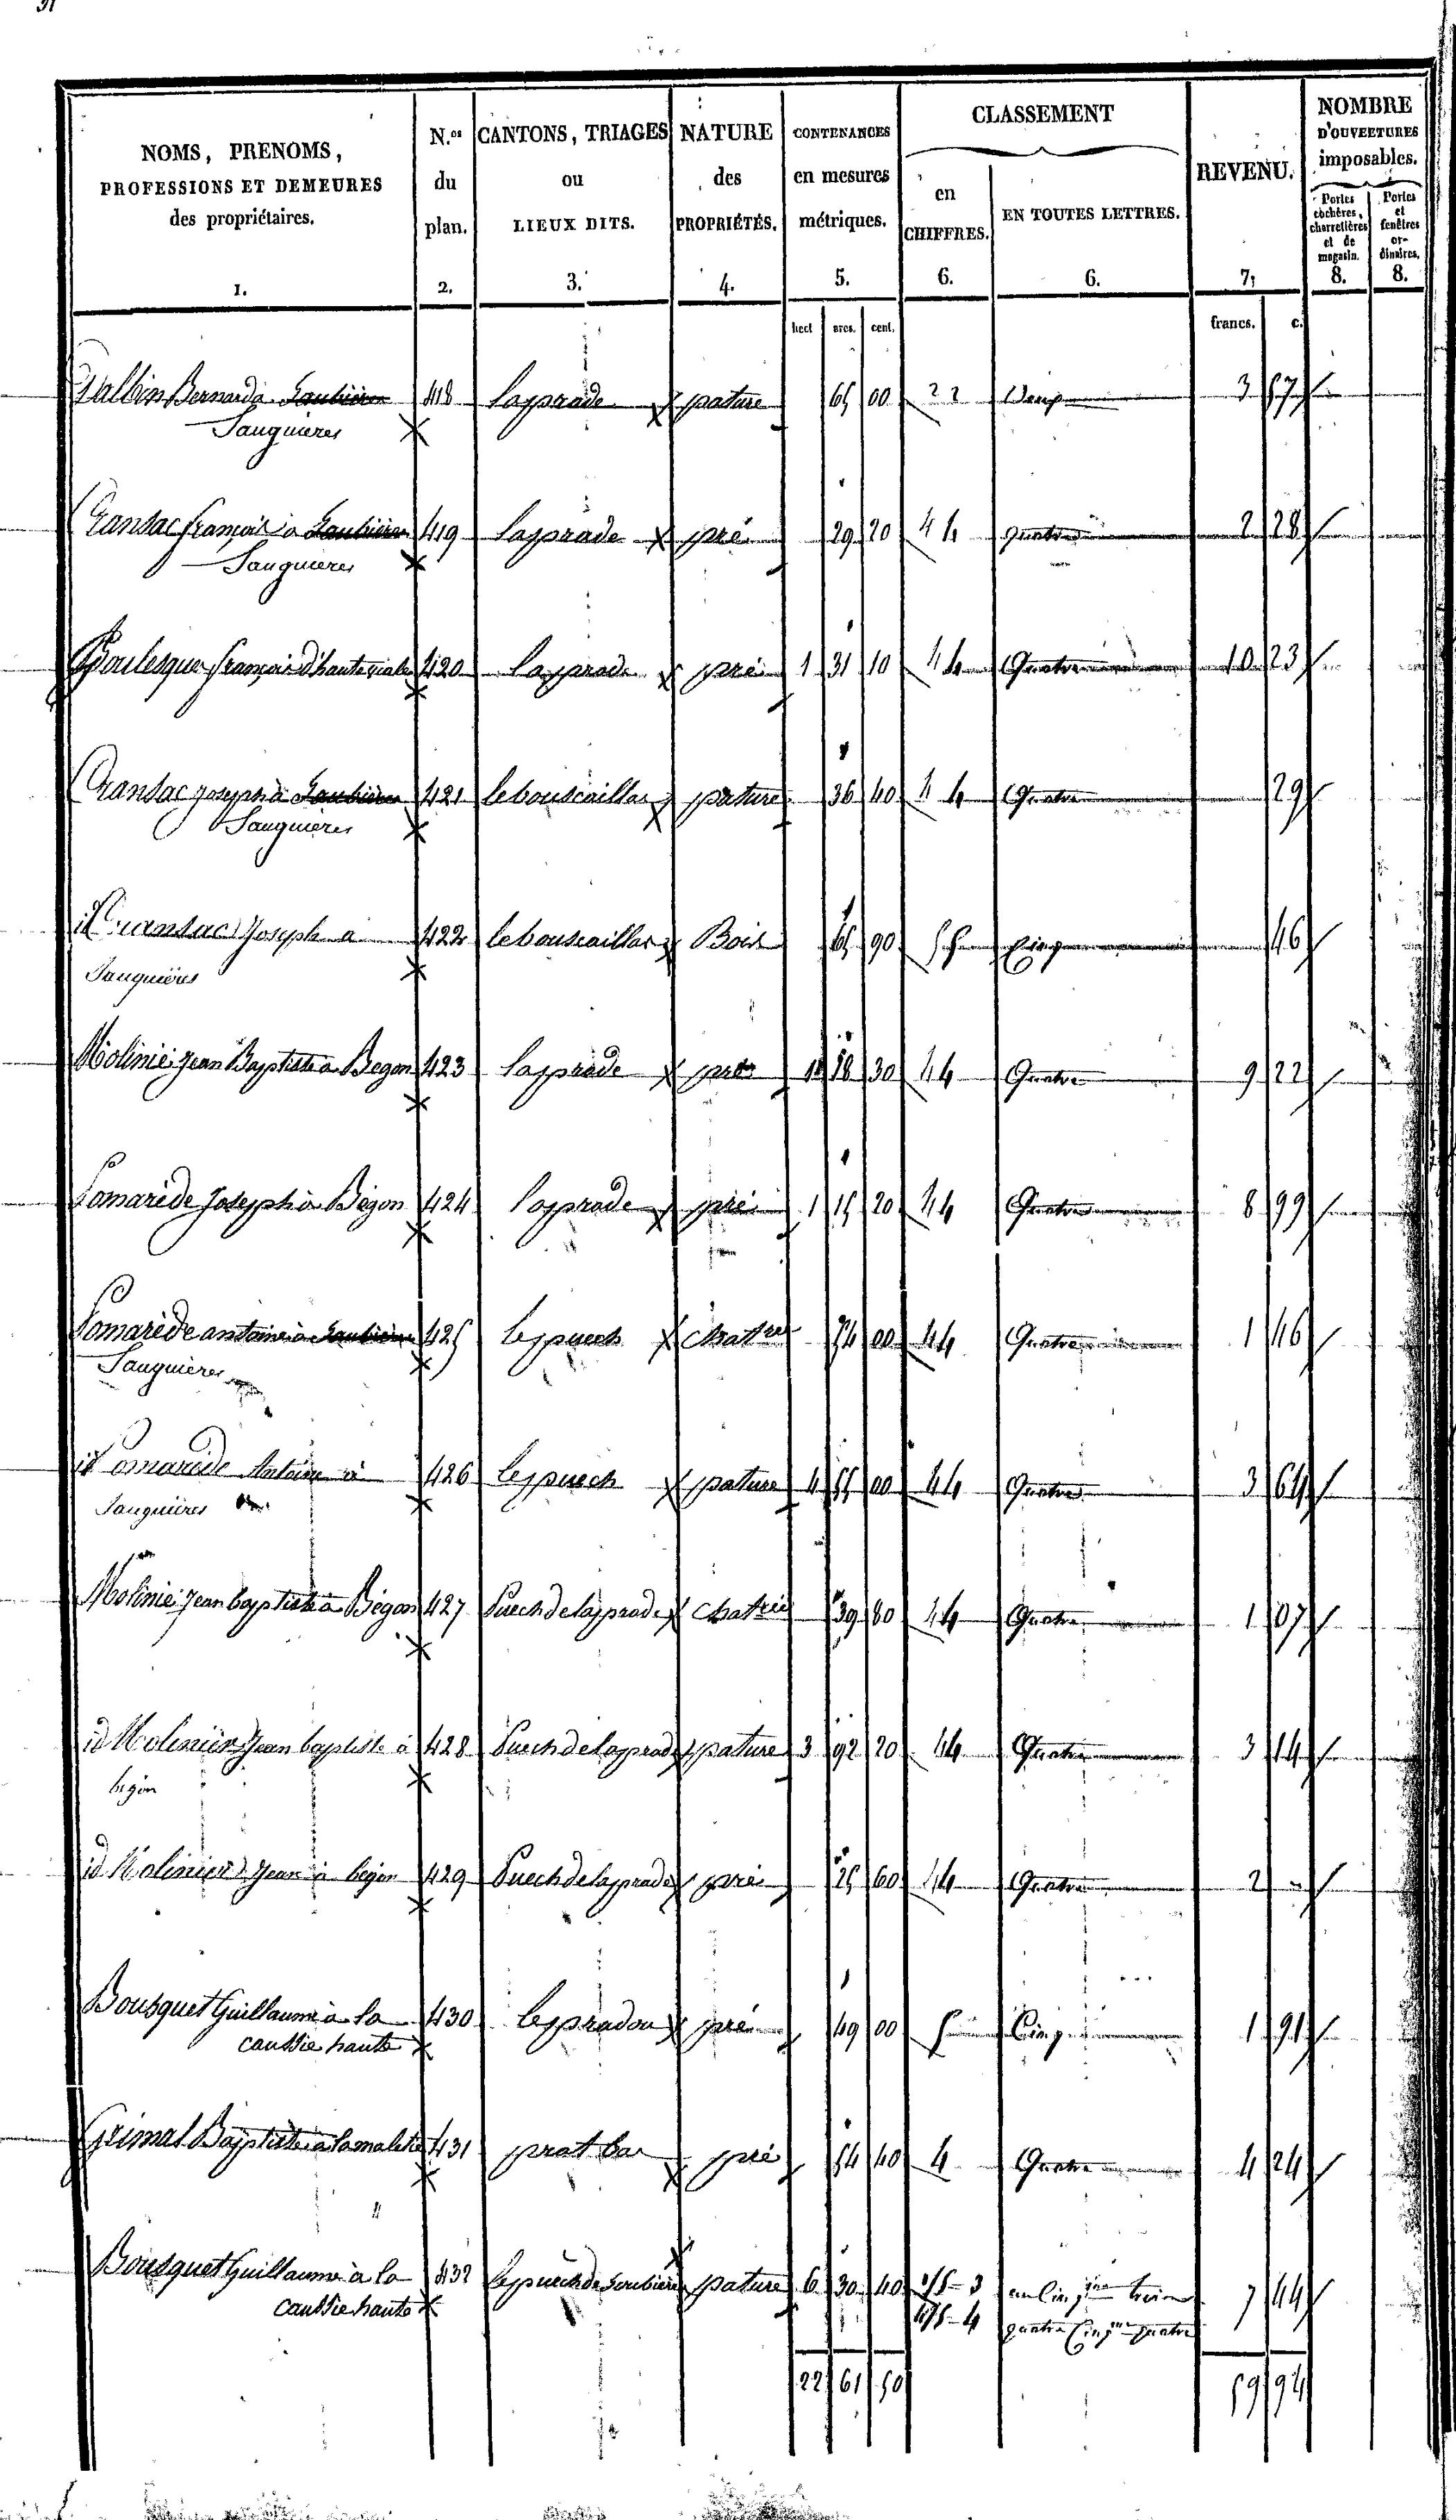 NOMS, PRENOMS,
PROFESSIONS ET DEMEURES
des propriétaires.
1.
N.os
du
plan.
2.
CANTONS, TRIAGES
ou
LIEUX DITS.
3.
NATURE
des
PROPRIÉTÉS.
4.
CONTENANCES
en mesures
métriques.
5.
CLASSEMENT
en
CHIFFRES.
6.
EN TOUTES LETTRES.
6.
REVENU.
7.
NOMBRE
D'OUVERTURES
imposables.
Portes
cochères,
charretières
et de
magasin.
8.
Portes
et
fenêtres
or-
dinaires.
8.
hect ares. cent. francs. c.
Bernard à 418 Laprade pature 65 00 2 2 Deux 3 57
Sauguieres
Cransac françois à 419 Laprade pré 29 20 4 4 quatre 2 28
Sauguieres
françois d'hauteriale 420 Laprade pré 1 31 10 4 4 Quatre 10 23
Cransac joseph à 421 lebouscaillou pature 36 40 4 4 Quatre 29
Sauguieres
id Cransac Joseph a 422 lebouscaillou Bois 65 90 5 Cinq 46
Sauguières
Molinié jean Baptiste a Begon 423 Laprade pré 1 18 30 4 4 Quatre 9 22
Lamaréde Joseph à Bégon 424 Laprade pré 1 15 20 4 4 Quatre 8 99
Lamaréde antoine à 425 lepuech 74 00 4 4 Quatre 1 46
Sauguières
id Lamaréde Antoine à 426 lepuech pature 4 55 00 4 4 Quatre 3 64
Sauguières
Molinié jean baptiste à Bégon 427 Puech de laprade 39 80 4 4 Quatre 1 07
id Molinier Jean baptiste à 428 Puech de laprade pature 3 92 20 4 4 Quatre 3 14
begon
id Molinier Jean à begon 429 Puech de laprade pré 25 60 4 4 Quatre 2
Bousquet Guillaume à la 430 lepradou pré 49 00 5 Cinq 1 91
caussie haute
Grimal Baptiste à lamalete 431 prat bar pré 54 40 4 Quatre 4 24
Bousquet Guillaume à la 432 lepuech de pature 6 30 40 1/5 - 3 un Cinqme trois 7 44
caussie haute 4/5 - 4 quatre Cinqme quatre
22 61 50 59 94